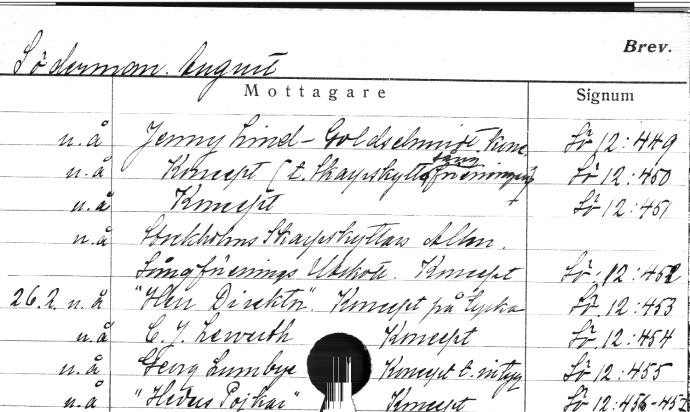 Brev.
Söderman. August
Mottagare Signum
u.å Jenny Lind - Goldschmidt. Konc. Sö 12:449
sång
u.å Koncept (t. Skarpskyttesföreningen) Sö 12:450
u.å Koncept Sö 12:451
u.å Stockholms Skarpskyttars Allm.
Sångförenings Utskott. Koncept Sö. 12:452
26.2. u.å "Herr Direktör". Koncept på tyska Sö. 12:453
u.å C. J. Koncept Sö. 12:454
u.å Georg Lumbye Koncept t. intyg Sö 12:455
u.å "Heders Pojkar" Koncept Sö 12:456-457